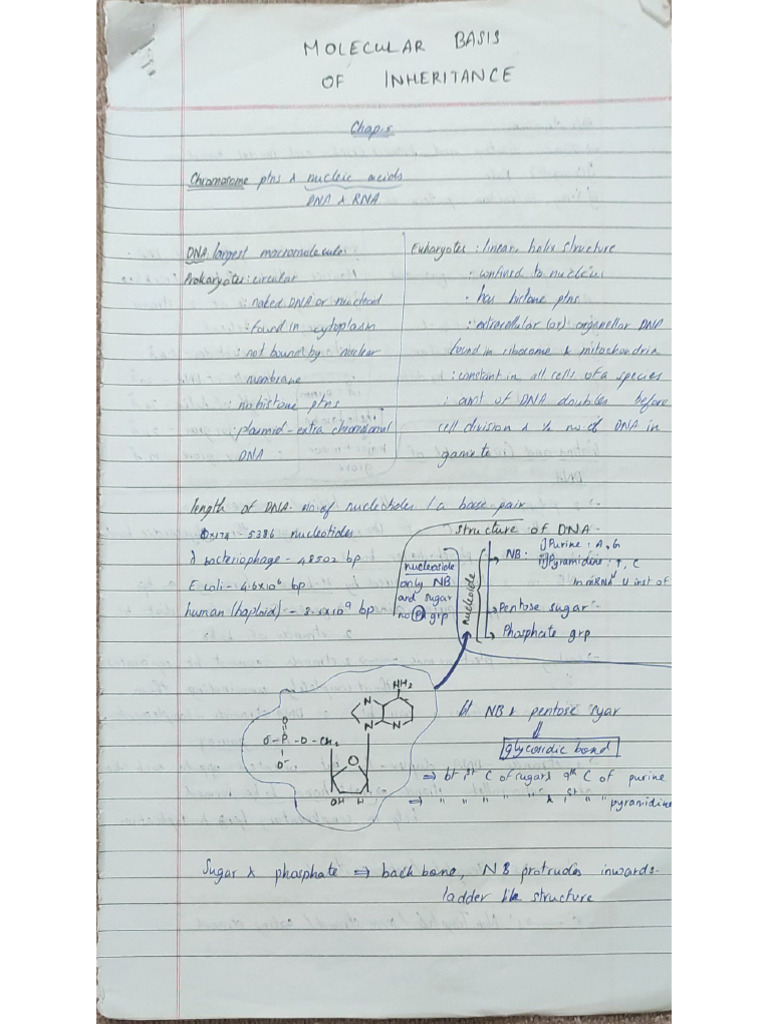 MOLECULAR BASIS
OF INHERITANCE
Chap 5
Chromosome ptns & nucleic acids
DNA & RNA
DNA largest macromolecule
Prokaryotes: circular
: naked DNA or nucleoid
: found in cytoplasm
: not bound by nuclear
membrane
: no histone ptns
: plasmid - extra chromosomal
DNA
Eukaryotes: linear, helix structure
: confined to nucleus
: has histone ptns
: extracellular (or) organellar DNA
found in ribosome & mitochondria
: constant in all cells of a species
: amt of DNA doubles before
cell division & ½ no of DNA in
gamete
length of DNA: no of nucleotides / a base pair
Φx174 - 5386 nucleotides
λ bacteriophage - 48502 bp
E coli - 4.6x10⁶ bp
human (haploid) - 3.3x10⁹ bp
nucleoside
only NB
and sugar
no P grp
structure of DNA-
nucleotide
NB: i) Purine: A, G
ii) Pyramidine: T, C
In mRNA U inst of
Pentose sugar
Phosphate grp
NH₂
N
N
N
N
O
O⁻-P-O-CH₂
O⁻
O
OH H
bt NB & pentose sugar
⇓
glycosidic bond
⇒ bt 1st C of sugar & 9th C of purine
⇒ " " " " " & 1st " " pyramidine
Sugar & phosphate ⇒ back bone, NB protrudes inwards-
ladder like structure